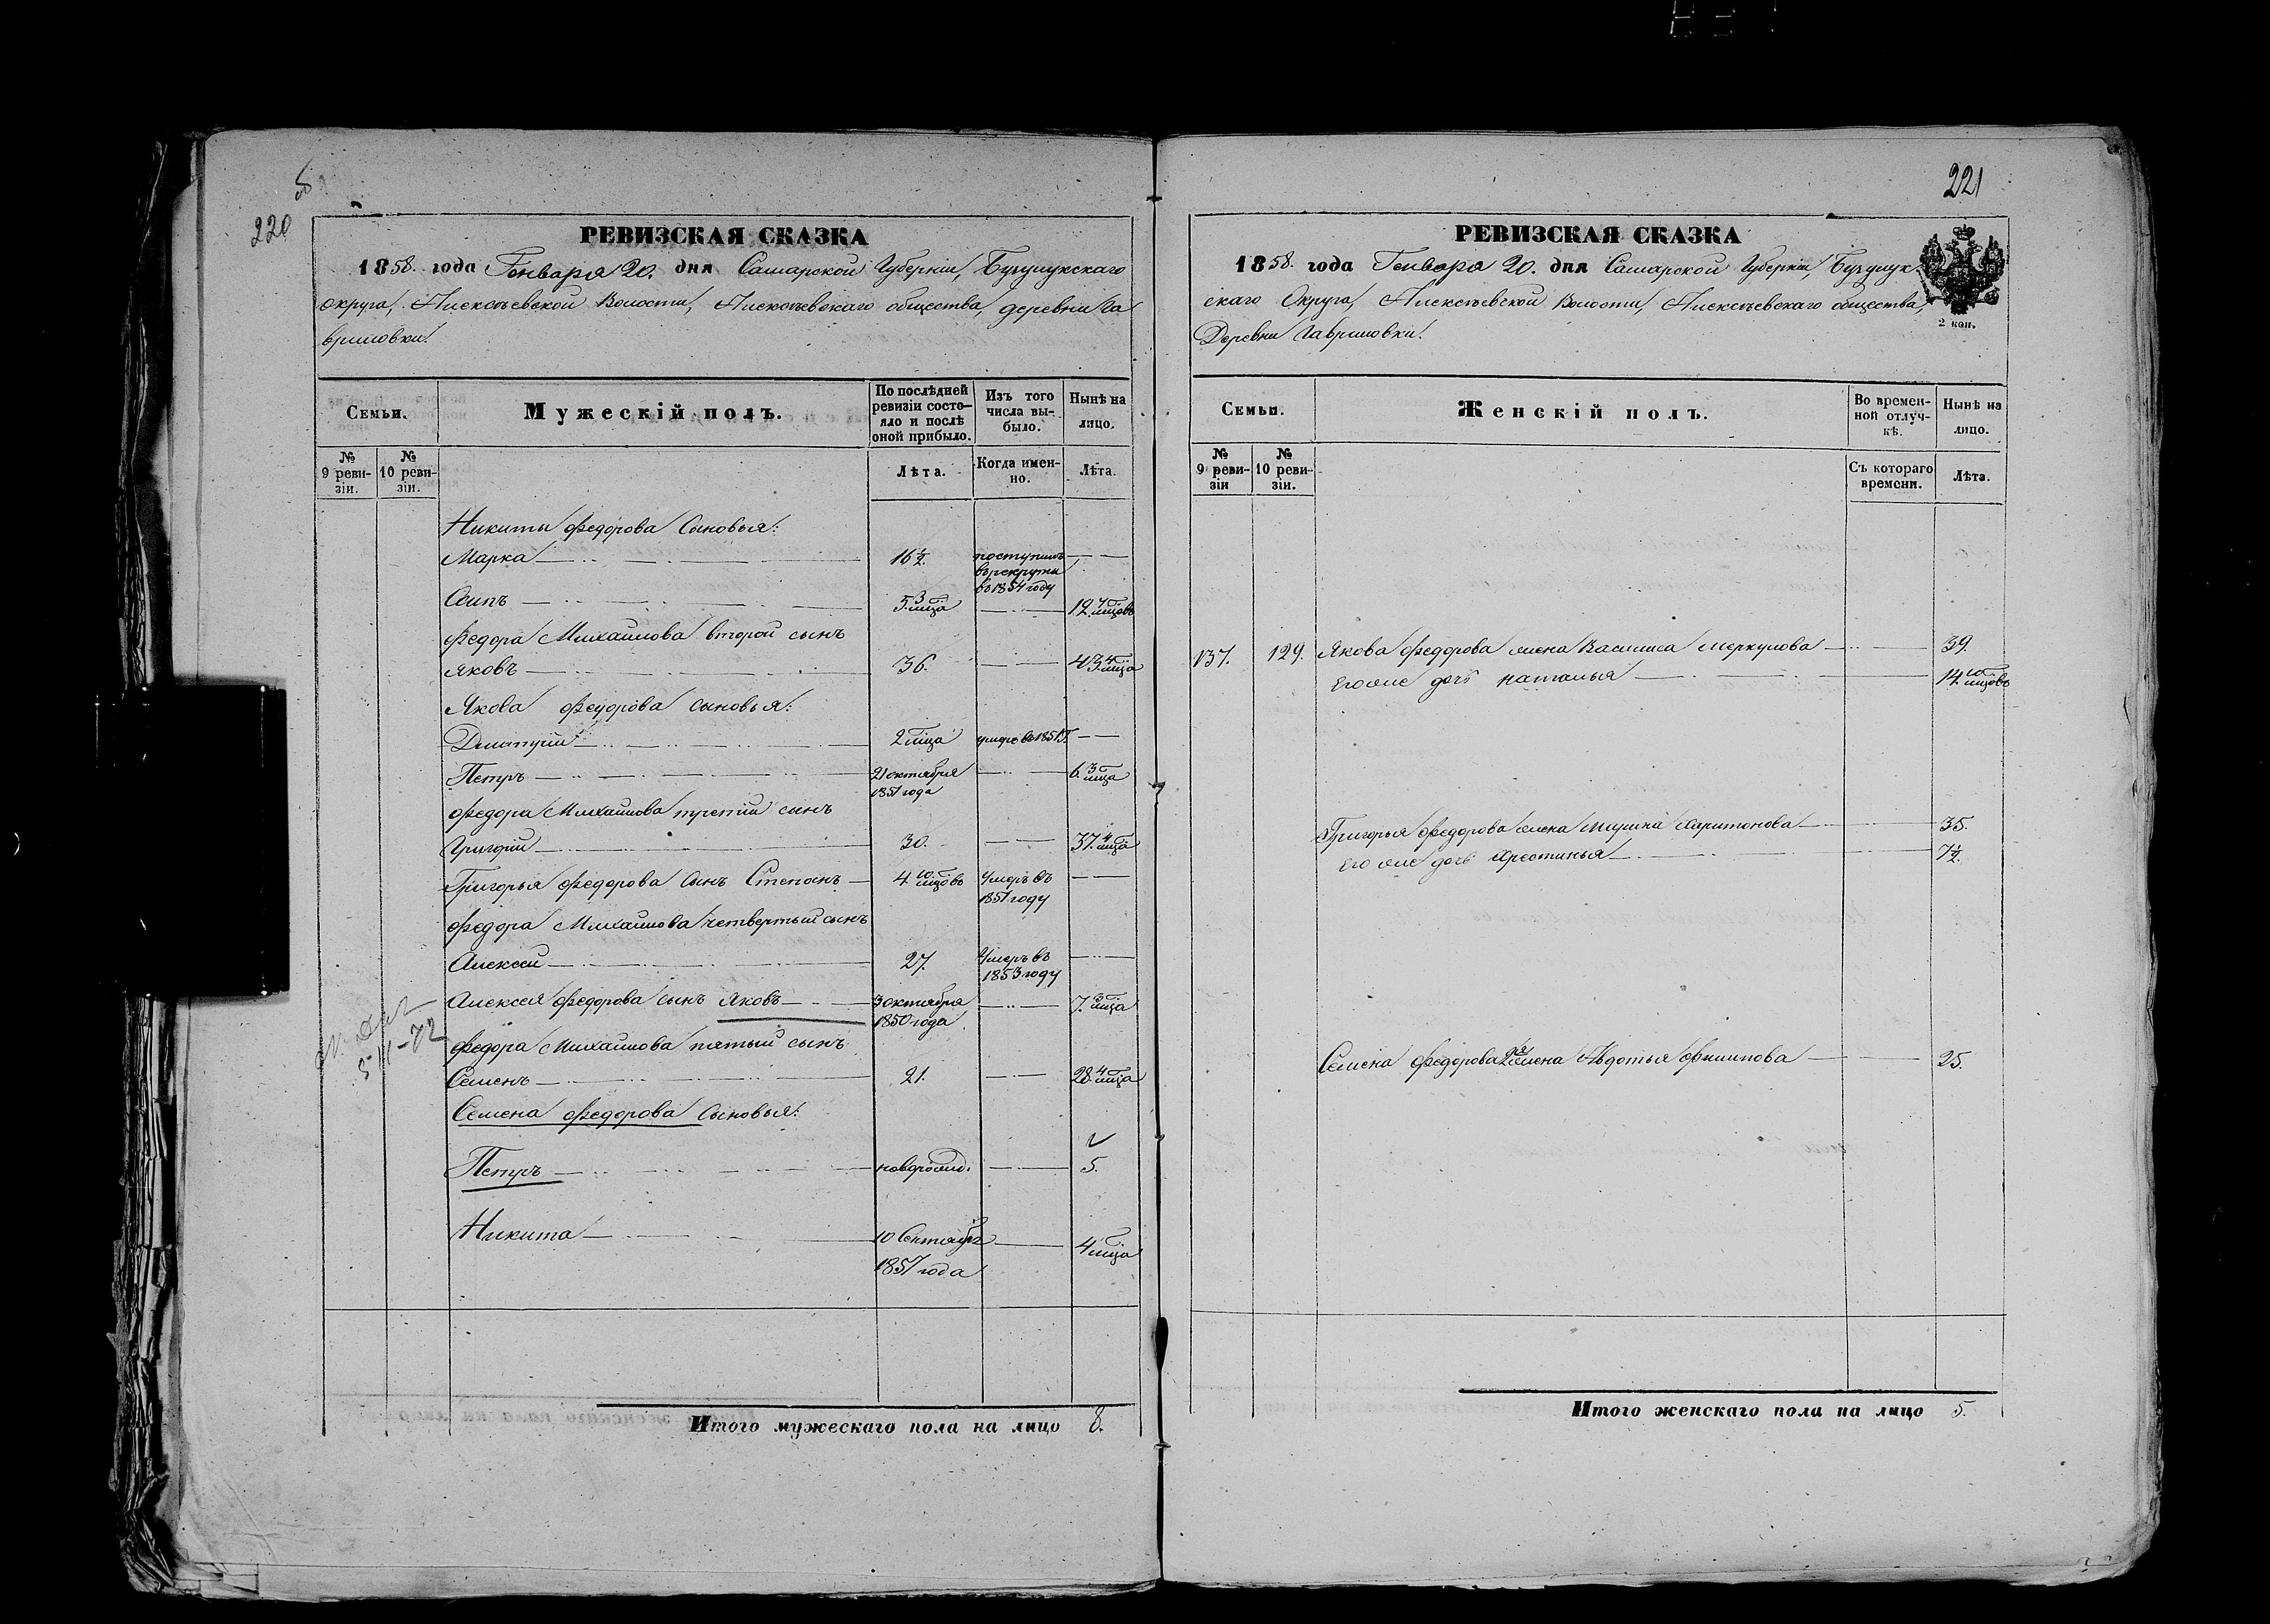 220
РЕВИЗСКАЯ СКАЗКА
1858. года Генваря 20. дня Самарской Губернiи, Бузулукскаго
округа, Алексѣевской Волости, Алексѣевскаго общества, деревни Га
вриловки.
Семьи.
Мужескiй полъ.
По послѣдней ревизiи состо-яло и послѣ оной прибыло.
Изъ того числа вы-было.
Нынѣ на лицо.
№ 9 реви-зiи.
№ 10 реви-зiи.
Лѣта.
Когда имен-но.
Лѣта.
Никиты Федорова Сыновья:
Марка 16½. поступилъ в рекруты в 1854 году
Осипъ 5. 3 мца 12. мцовъ
Федора Михайлова второй сынъ
Яковъ 36. 43. мца
Якова Федорова сыновья:
Дмитрiй 2 мца
Петръ 21 октября 1851 года 6. 3 мца
Федора Михайлова третiй сынъ
Григорiй 30. 37. 4 мца
Григорья Федорова Сынъ Степанъ 4. 10 мцовъ Умеръ въ 1851 году
Федора Михайлова четвертый сынъ
Алексей 27. Умеръ въ 1853 году
Алексея Федорова сынъ Яковъ 3 октября 1850 года 7. 3 мца
Федора Михайлова пятый сынъ
Семенъ 21. 28. 4 мца
Семена Федорова Сыновья:
Петръ новорожд. 5.
Никита 10 Сентября 1857 года 4 мца
5-11-72
Итого мужескаго пола на лицо 8.
221
РЕВИЗСКАЯ СКАЗКА
1858. года Генваря 20. дня Самарской Губернiи, Бузулук-
скаго Округа, Алексѣевской Волости, Алексѣевскаго общества,
Деревни Гавриловки.
2 коп.
Семьи.
Женскiй полъ.
Во времен-ной отлуч-кѣ.
Нынѣ на лицо.
№ 9 реви-зiи
№ 10 реви-зiи.
Съ котораго времени.
Лѣта.
137. 129. Якова Федорова жена Василиса Меркулова 39.
Его же дочь Наталья 14. 10 мцовъ
Григорья Федорова жена Марина Харитонова 35.
Его же дочь Хрестинья 7½.
Семена Федорова 2я жена Авдотья Филипова 25.
Итого женскаго пола на лицо 5.